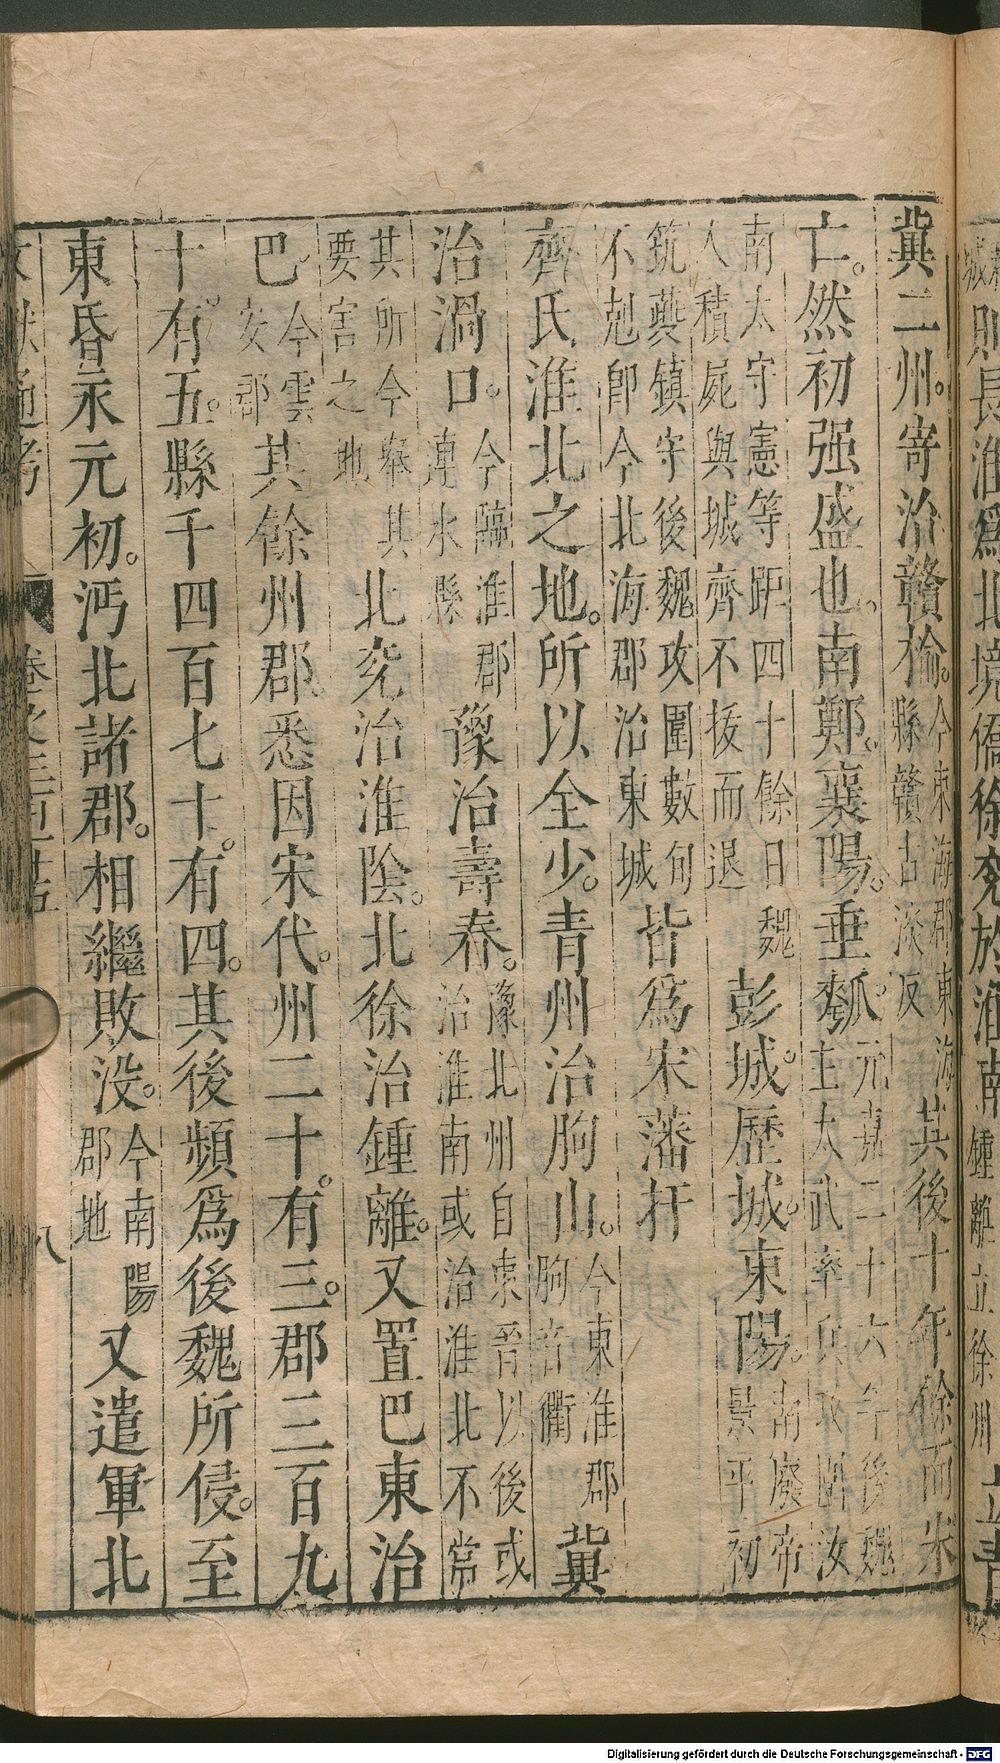 冀二州寄治贛榆今東海郡東海縣贛古淡反其後十年餘而宋
亡然初强盛也南鄭襄陽垂瓠元嘉二十六年後魏主太武率兵攻圍汝
南太守憲等距四十餘日魏人積屍與城齊不拔而退彭城歷城東陽
景平初
筑藝鎮守後魏攻圍數旬不剋卽今北海郡治東城皆爲宋藩扞
齊氏淮北之地所以全少青州治朐山今東淮郡朐音衢冀
治渦口今臨淮郡漣水縣豫治壽春豫北州自東晉以後或治淮南或治淮北不常
其所今舉其要害之地北兖治淮陰北徐治鍾離又置巴東治
巴今雲安郡其餘州郡悉因宋代州二十有三郡三百九
十有五縣千四百七十有四其後頻爲後魏所侵至
東昏永元初沔北諸郡相繼敗没今南陽郡地又遣軍北
八
則長淮爲北境僑徐兖於淮南鍾離立徐州
Digitalisierung gefördert durch die Deutsche Forschungsgemeinschaft - DFG